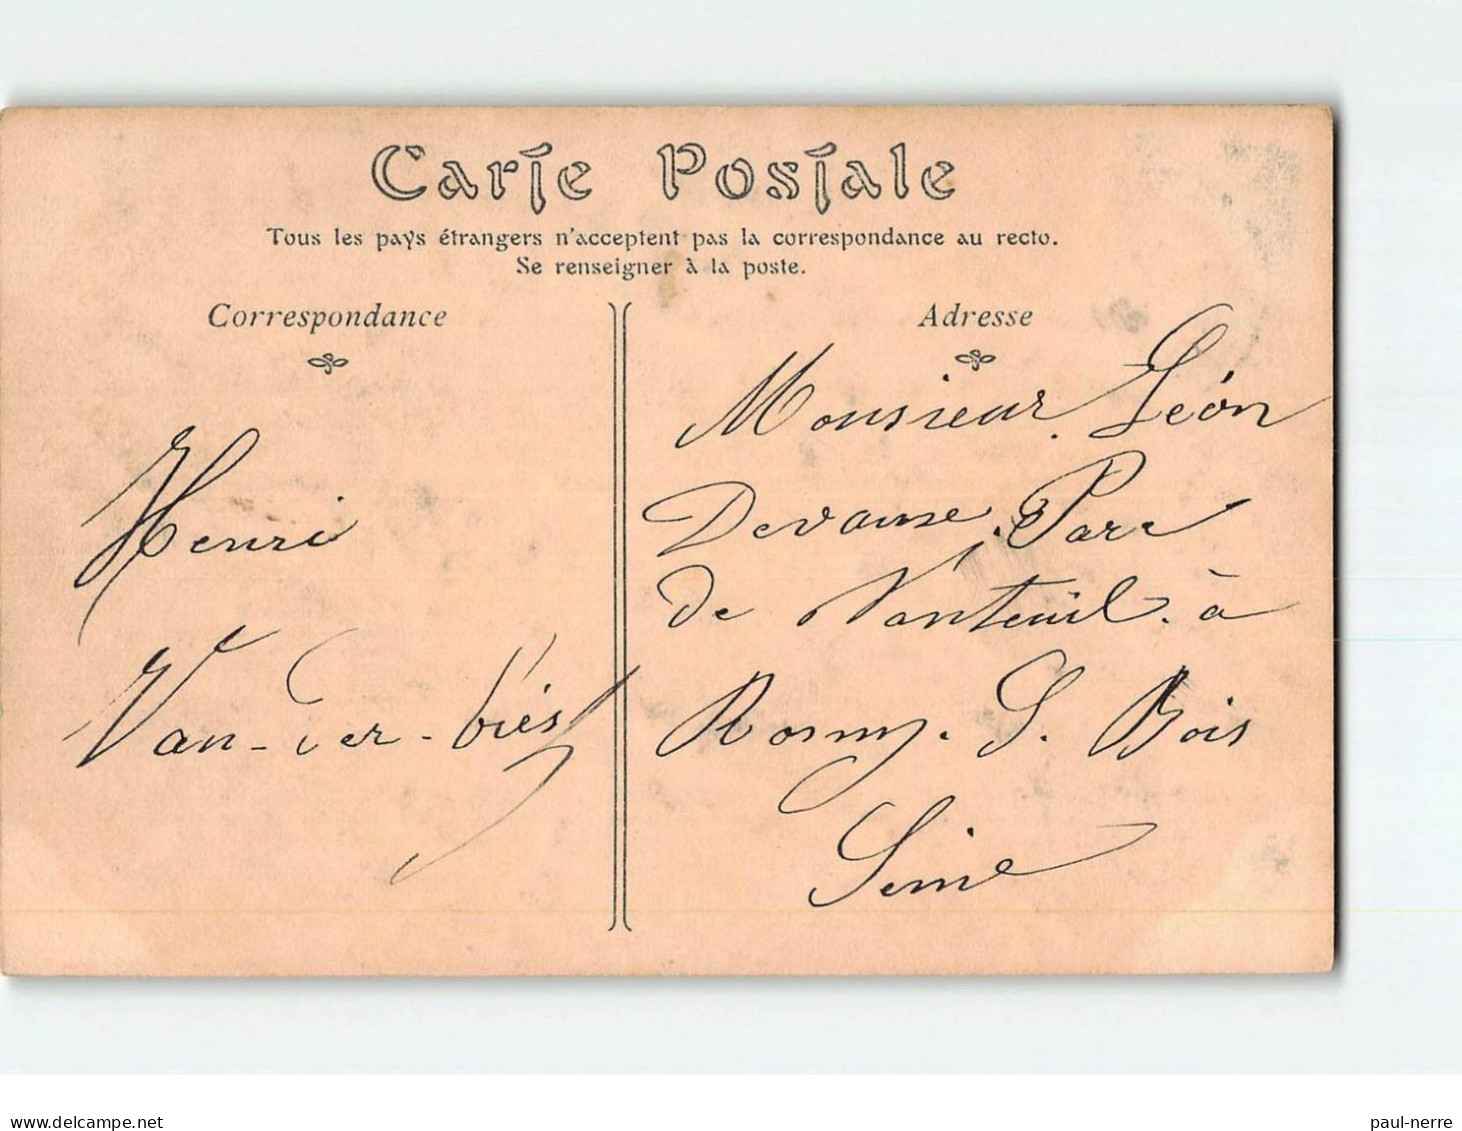 Carte Postale
Tous les pays étrangers n'acceptent pas la correspondance au recto.
Se renseigner à la poste.
Correspondance
Henri
Van-der-biest
Adresse
Monsieur Léon
Parc
de Nanteuil. à
Rosny. S. Bois
Seine
delcampe.net
paul-nerre